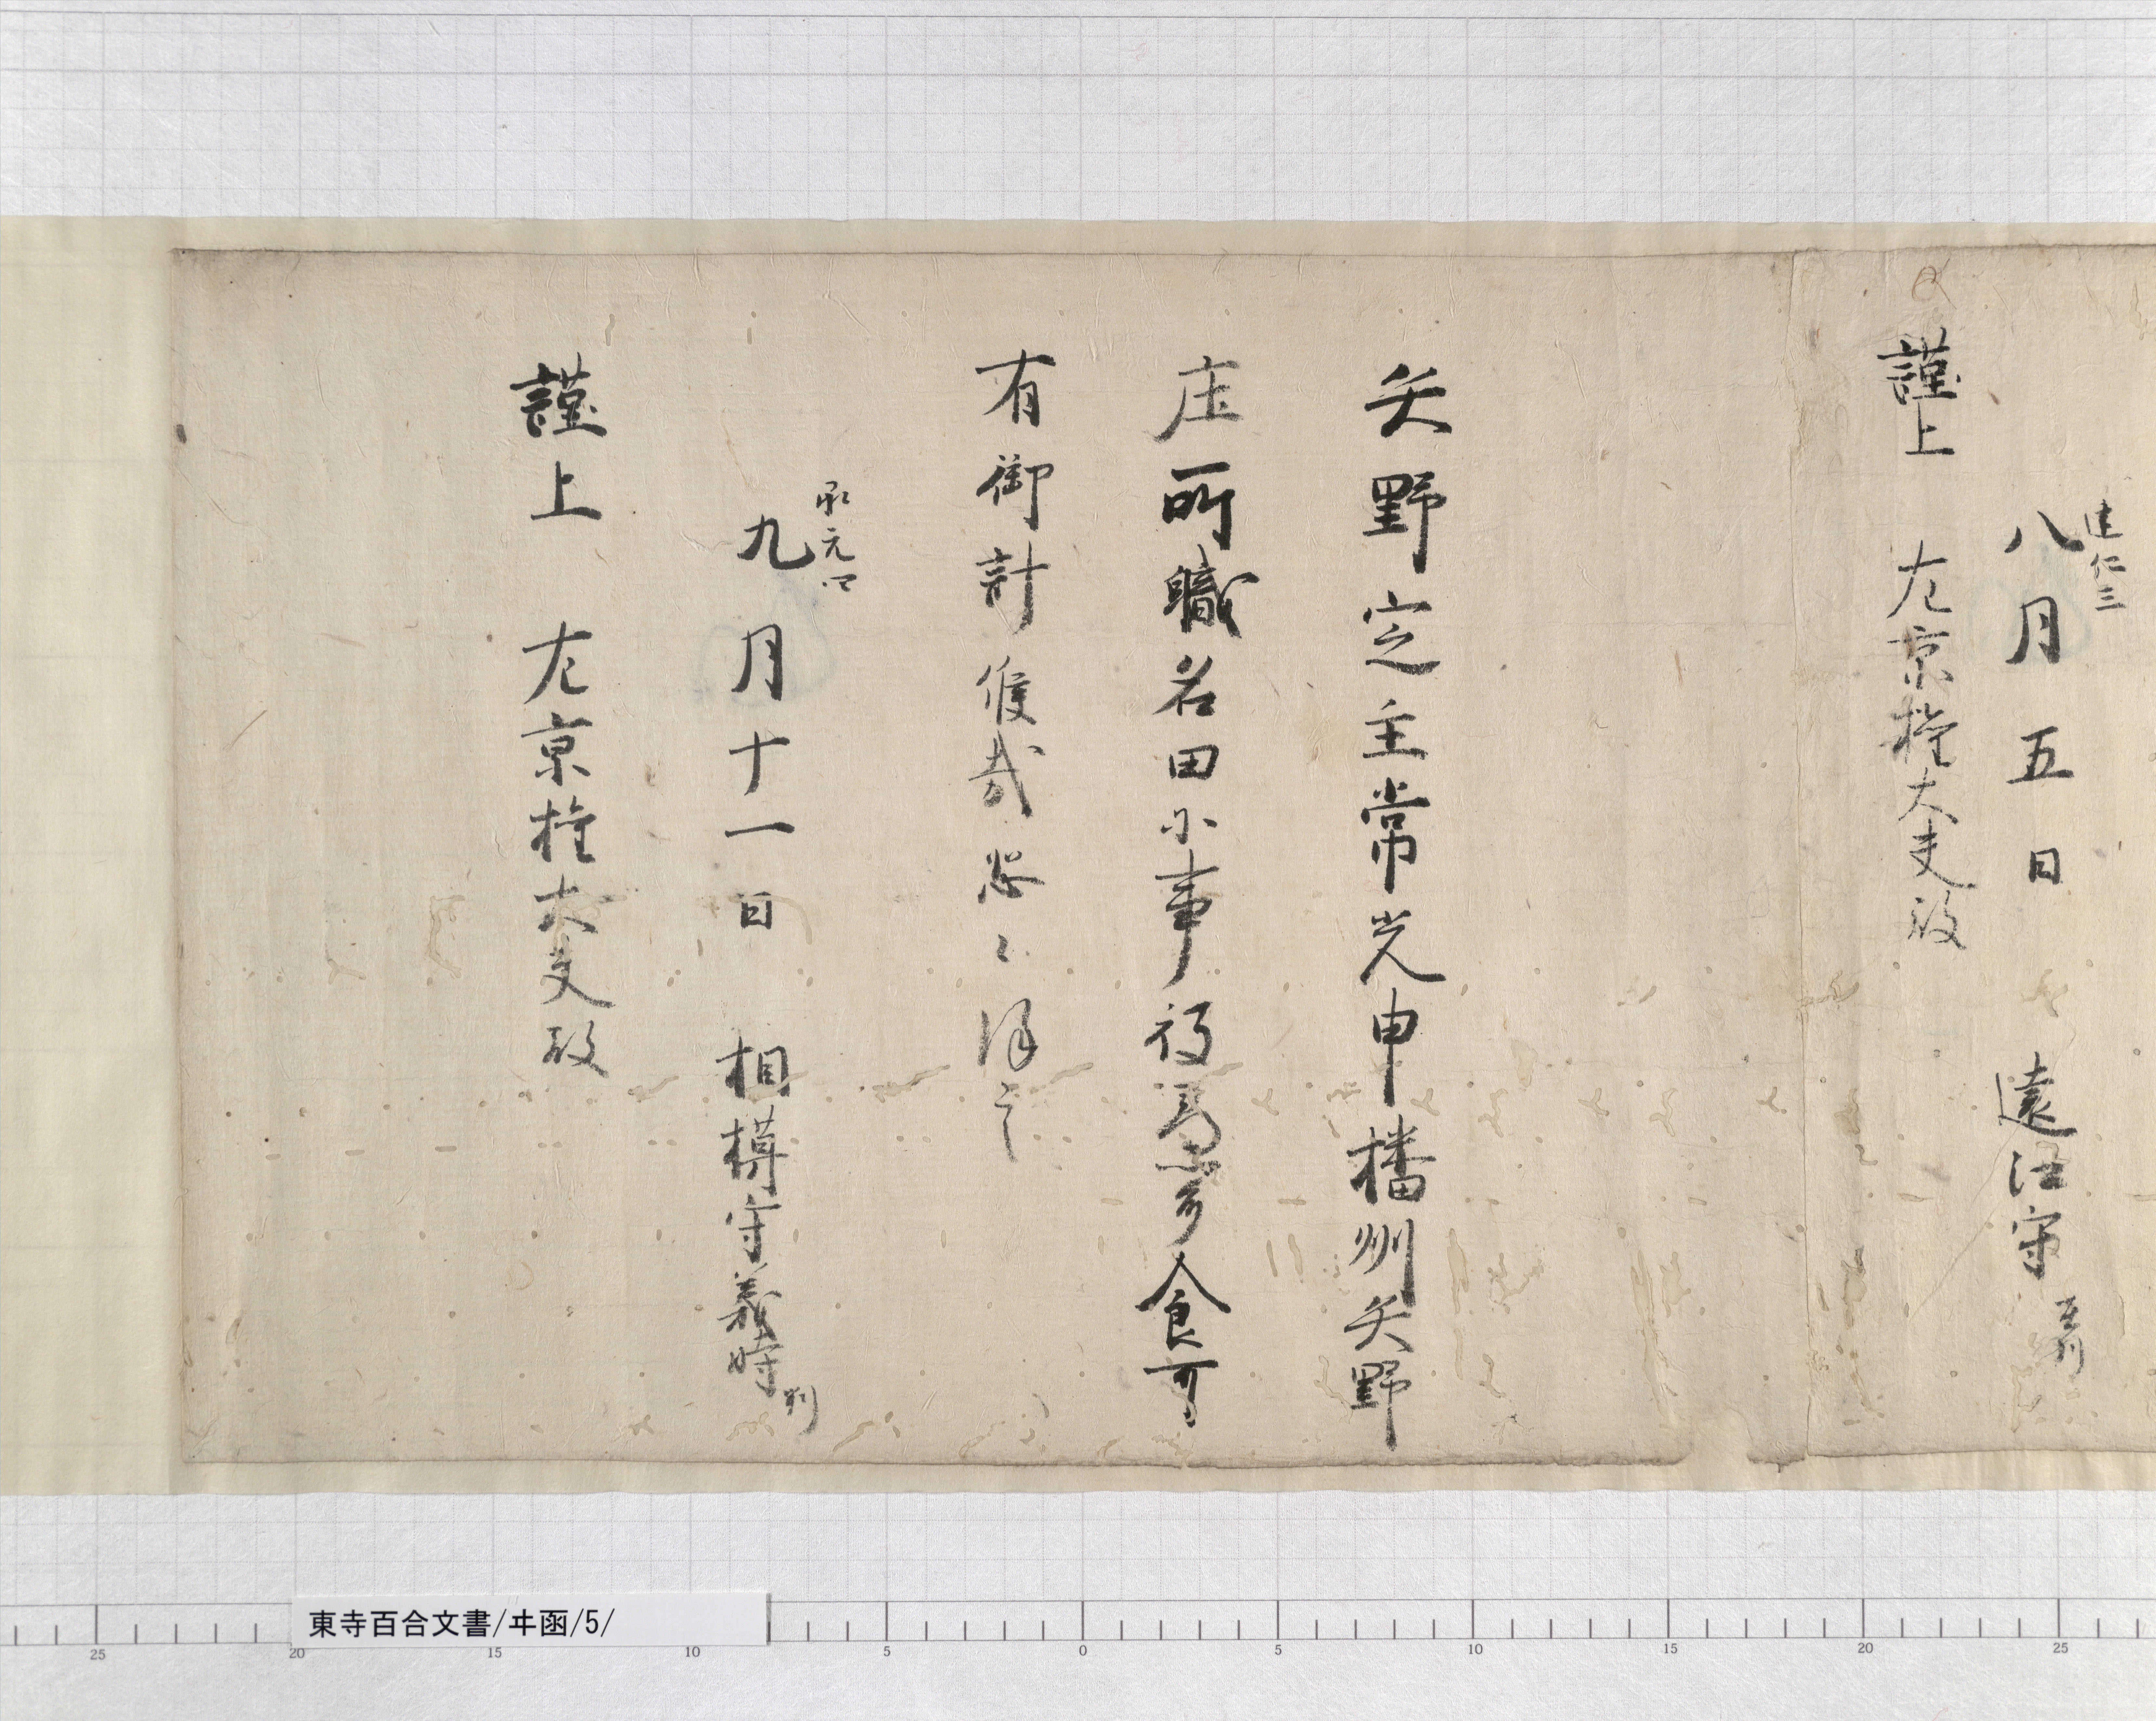 建仁三
八月五日　遠江守 在判
謹上　左京権大夫殿
矢野定主常光申播州矢野
庄所職名田小事被為聞食可
有御計候哉恐々謹言
承元四
九月十一日　相模守義時 判
謹上　左京権大夫殿
東寺百合文書/ヰ函/5/
25 20 15 10 5 0 5 10 15 20 25